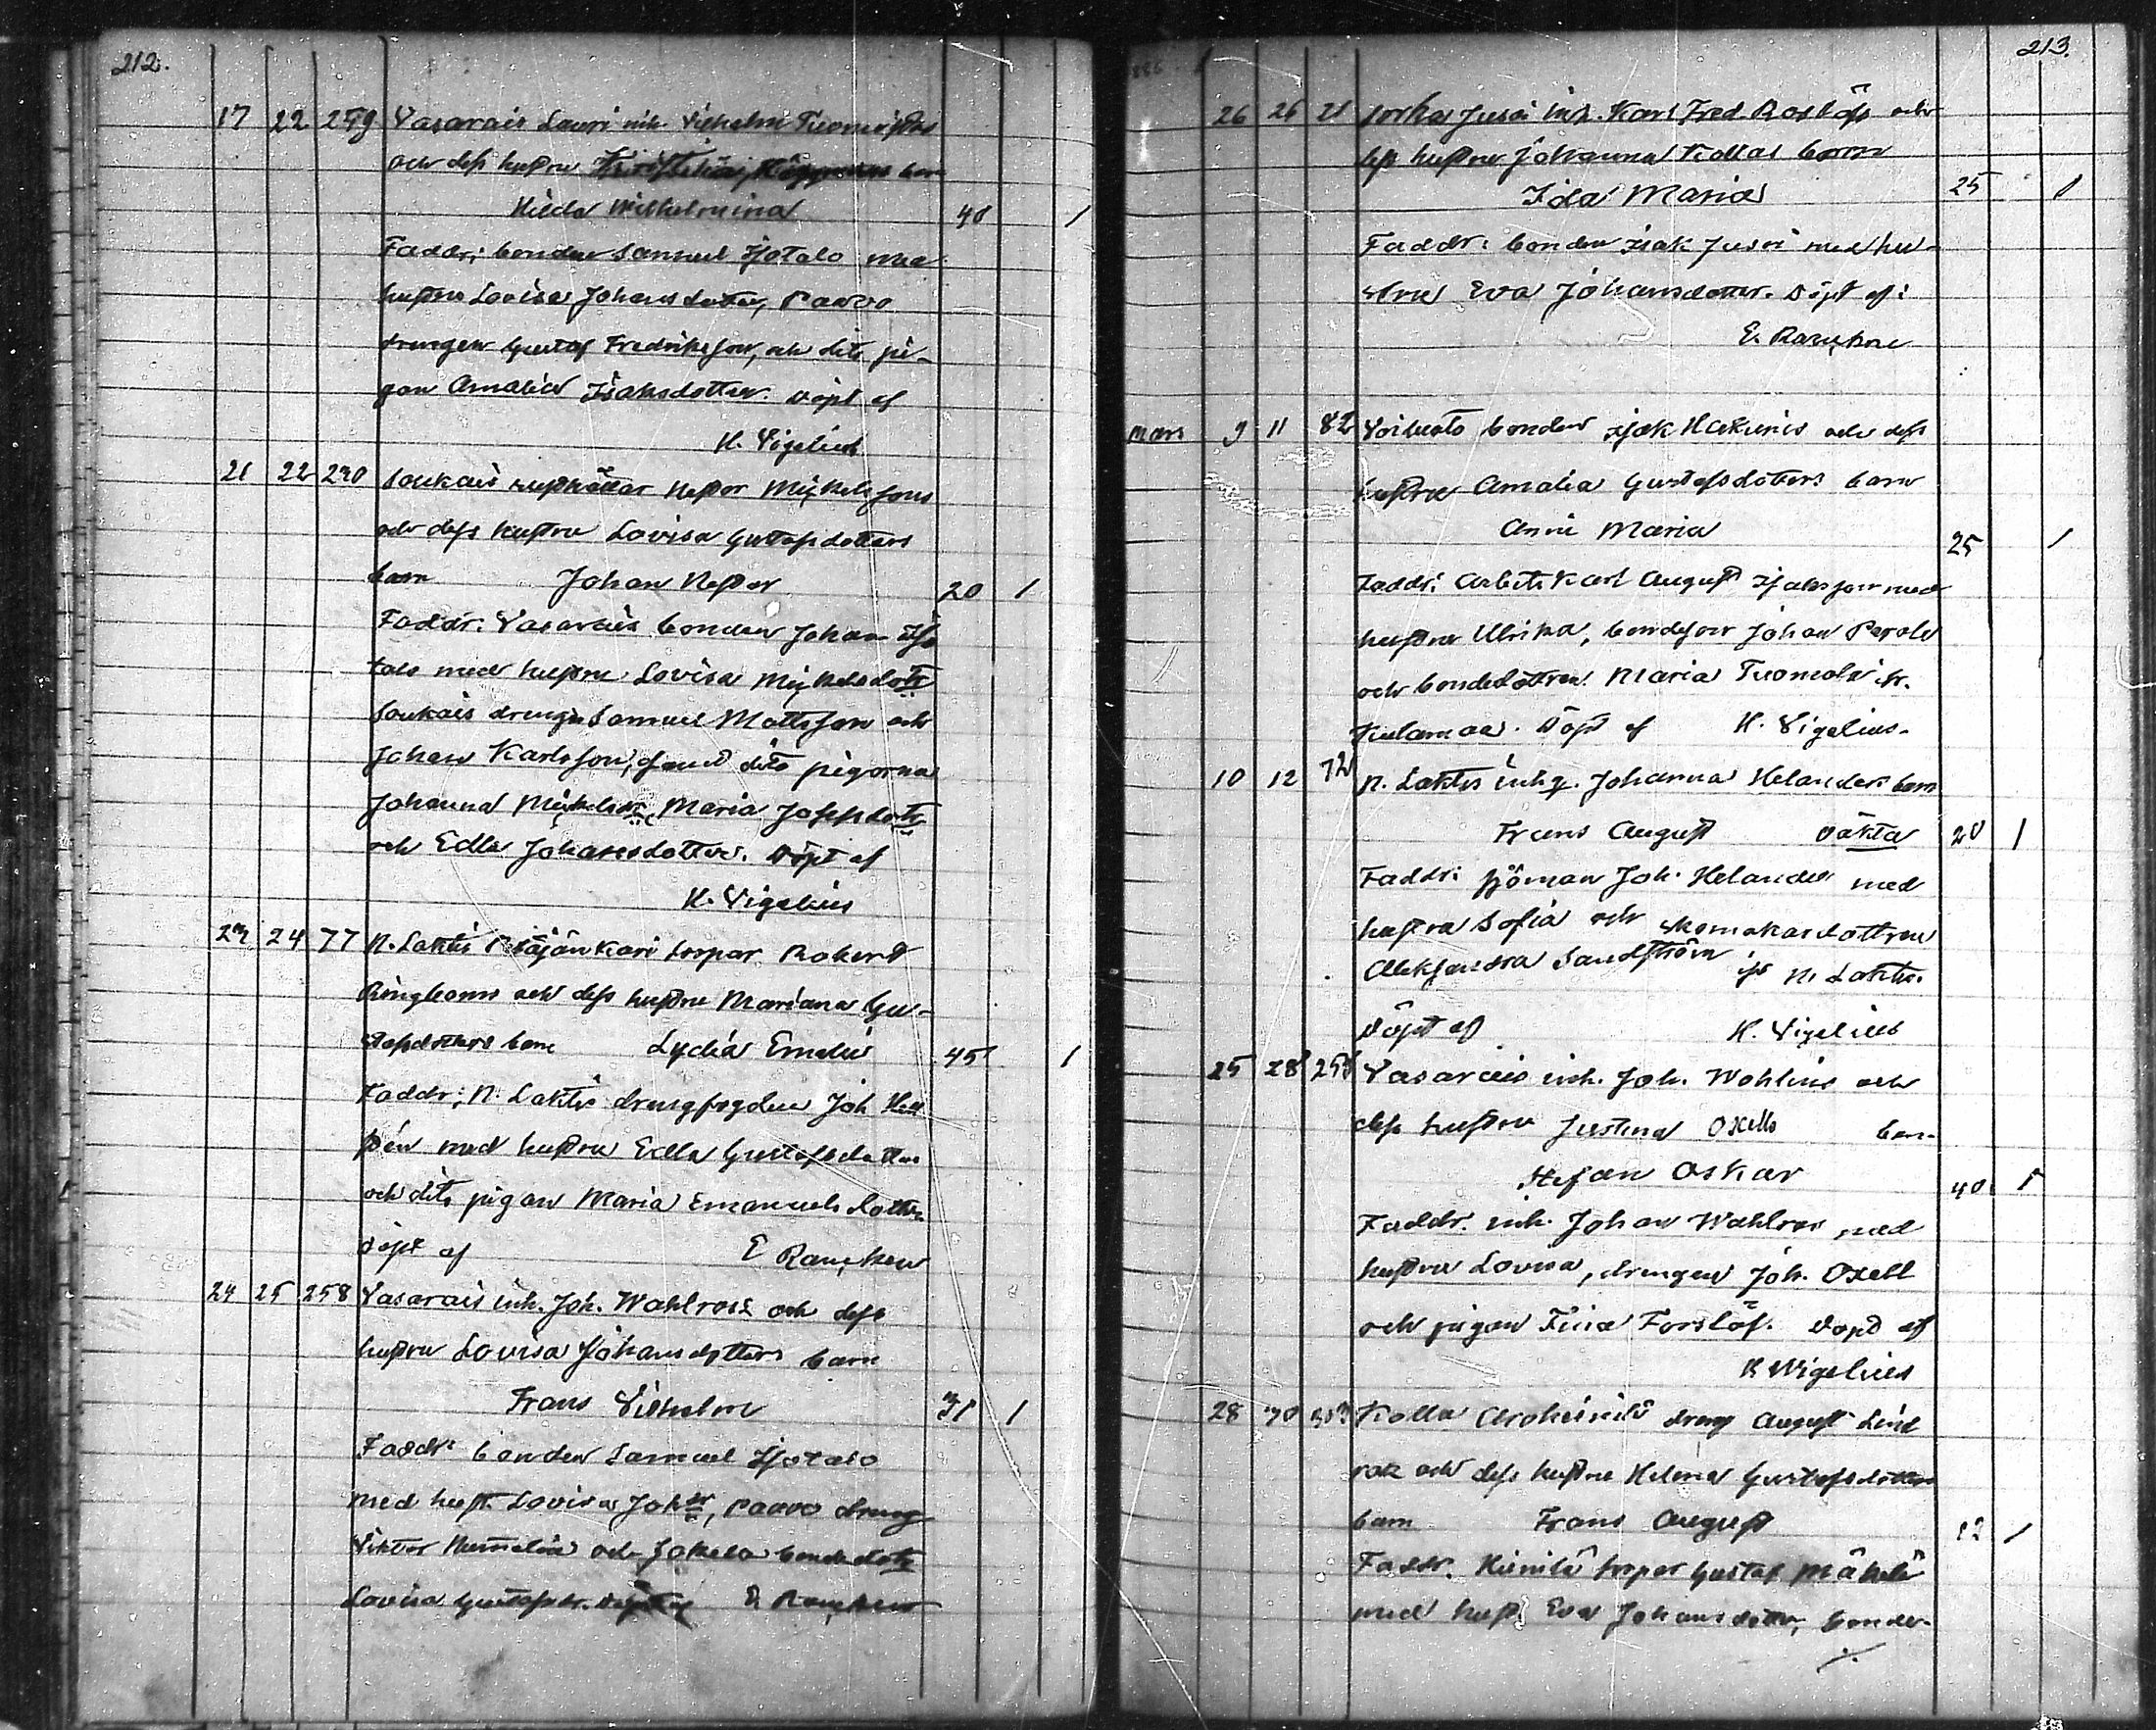 212.
17 22 259 Vasarais Lauri inh. Vilhelm Tuomistos
och dess hustru barn
Hilda Wilhelmina 40 1
Faddr; bonden Samuel Isotalo med
hustru Lovisa Johansdotter, Paavo
drengen Gustaf Fredriksson, och dito pi-
gan Amalia Isaksdotter. Döpt af
H. Vigelius
21 22 230 Soukais Nestor Mickelssons
och dess hustru Lovisa Gustafsdotters
barn Johan Nestor 20 1
Faddr: Vasarais bonden Johan Iso
talo med hustru Lovisa Mickelsdotr
Soukais dreng Samuel Mattsson och
Johan Karlsson, samt dito pigorna
Johanna Mickelsdr, Maria Josefsdotr
och Edla Johansdotter. Döpt af
H. Vigelius
23 24 77 N. Lahtis torpar Robert
Ringboms och dess hustru Mariana Gu-
stafsdotters barn Lydia Emelie 45 1
Faddr; N. Lahtis drengfogden Joh. Hell
stén med hustru Edla Gustafsdotter
och dito pigan Maria Emanuelsdotter
döpt af E Rancken
24 25 258 Vasarais inh. Joh. Wahlross och dess
hustru Lovisa Johansdotters barn
Frans Vilhelm 31 1
Faddr: bonden Samuel Isotalo
med hust. Lovisa Johdr, Paavo dreng
Viktor Nummelin och Jokela bondedotr
Lovisa Gustafsdr. Döpt af E. Rancken
213.
26 26 21 Sorkka Jussi inh. Karl Fred. Roslöfs och
dess hustru Johanna Kollas barn
Ida Maria 25 1
Faddr: bonden Isak Jussi med hu-
stru Eva Johansdotter. Döpt af:
E. Rancken
Mars 9 11 82 Voiluoto bonden Isak Heikinis och dess
hustru Amalia Gustafsdotters barn
Anni Maria 25 1
Faddr: Arbetskarl August Isaksson med
hustru Ulrika, bondeson Johan Perola
och bondedottren Maria Tuomola fr.
Kulamaa. Döpt af H. Vigelius.
10 12 72 N. Lahtis inh.q. Johanna Helanders barn
Frans August oäkta 20 1
Faddr: sjöman Joh. Helander med
hustru Sofia och skomakardottren
Aleksandra Sandström fr N. Lahtis.
Döpt af H. Vigelius
25 28 258 Vasarais inh. Joh. Wohlins och
dess hustru Justina Oxells barn
Stefan Oskar 40 1
Faddr. inh. Johan Wahlros med
hustru Lovisa, drengen Joh. Oxell
och pigan Fiina Forslöf. Döpt af
H Wigelius
28 30 303 Kolla Aroheinilä dreng August Lind
roos och dess hustru Helena Gustafsdotters
barn Frans August 32 1
Faddr. Heinilä torpar Gustaf Mäkelä
med hust. Eva Johansdotter, bonde-
./.